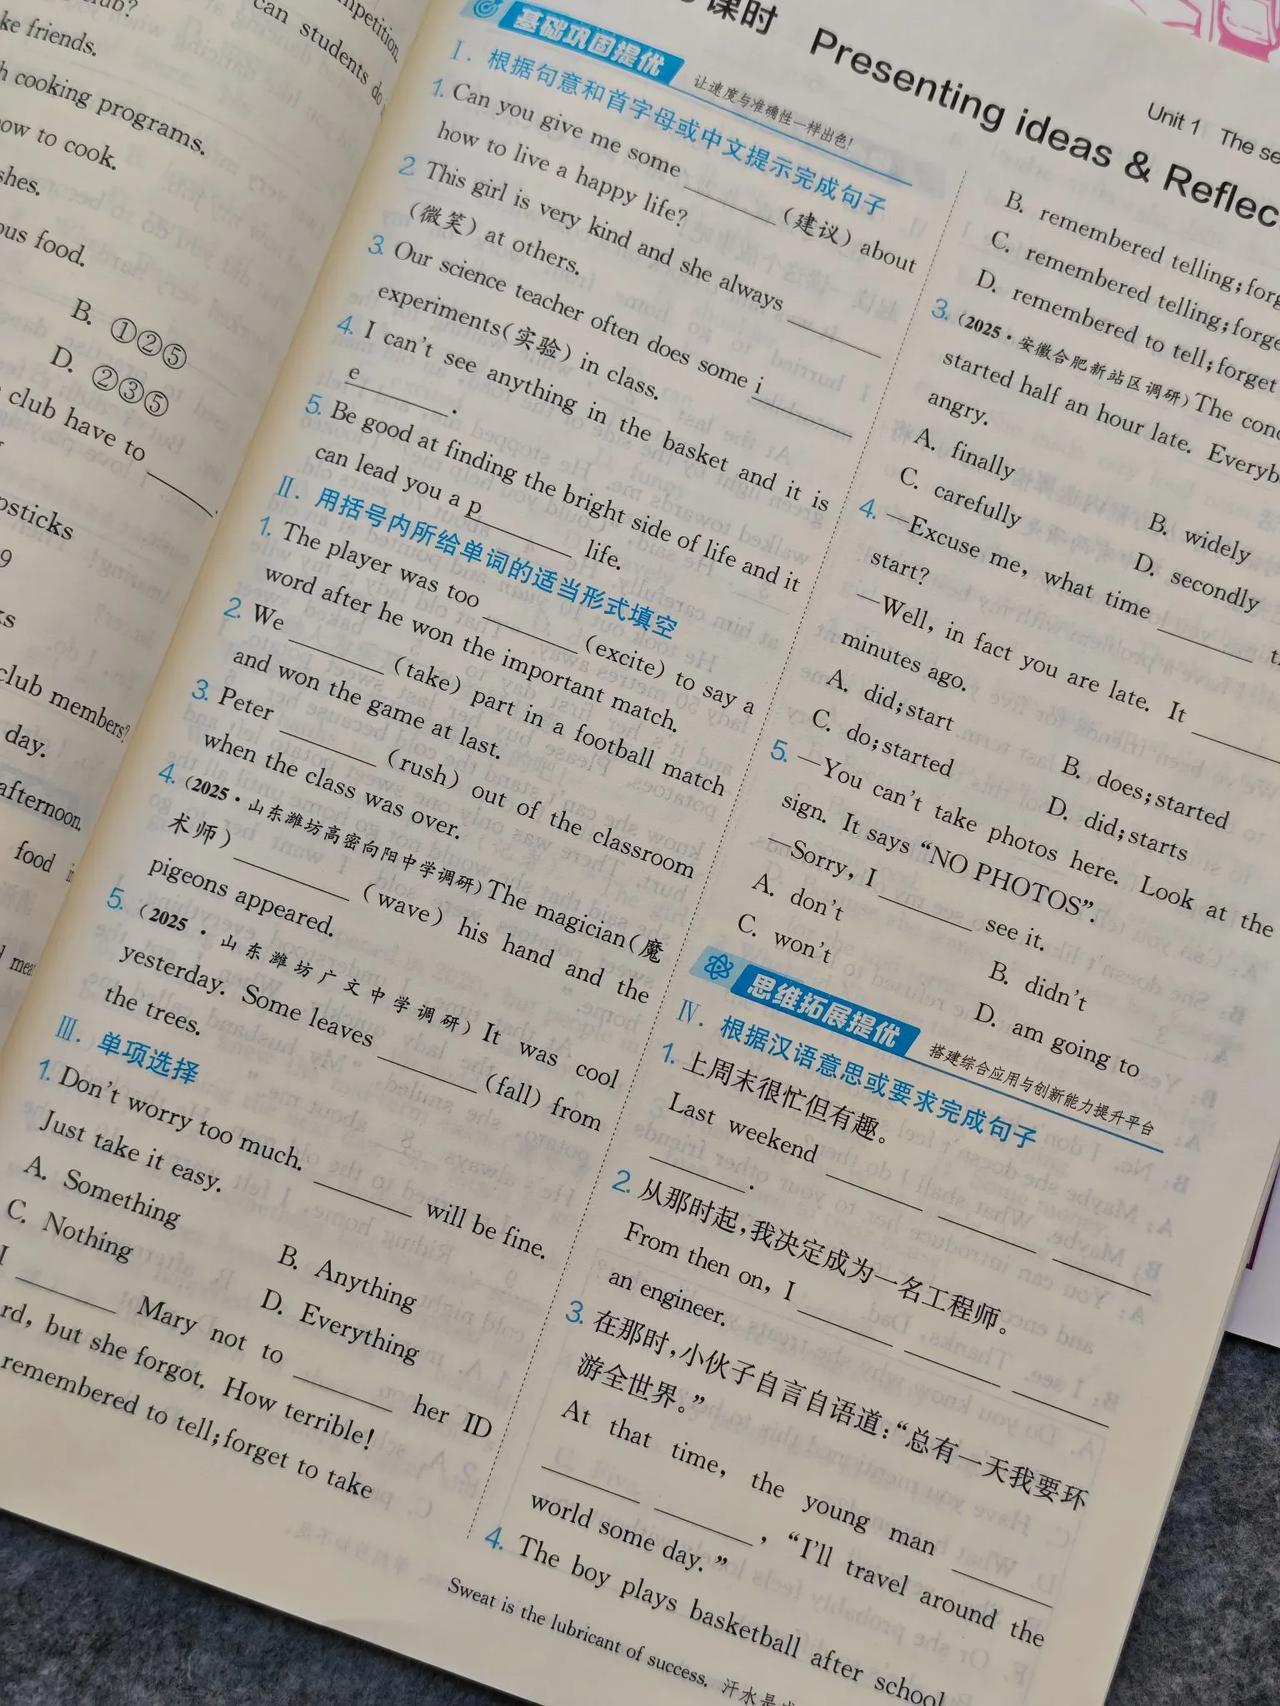 club?
ke friends.
h cooking programs.
ow to cook.
shes.
ous food.
B. ①②⑤
D. ②③⑤
club have to ____.
opsticks
9
ks
club members?
day.
afternoon.
food
mpetition.
can students do
课时 Presenting ideas & Reflec
Unit 1 The se
基础巩固提优 让速度与准确性一样出色!
Ⅰ. 根据句意和首字母或中文提示完成句子
1. Can you give me some ____ (建议) about
how to live a happy life?
2. This girl is very kind and she always ____
(微笑) at others.
3. Our science teacher often does some i____
experiments(实验) in class.
4. I can't see anything in the basket and it is
e____.
5. Be good at finding the bright side of life and it
can lead you a p____ life.
Ⅱ. 用括号内所给单词的适当形式填空
1. The player was too ____ (excite) to say a
word after he won the important match.
2. We ____ (take) part in a football match
and won the game at last.
3. Peter ____ (rush) out of the classroom
when the class was over.
4. (2025·山东潍坊高密向阳中学调研) The magician(魔
术师) ____ (wave) his hand and the
pigeons appeared.
5. (2025·山东潍坊广文中学调研) It was cool
yesterday. Some leaves ____ (fall) from
the trees.
Ⅲ. 单项选择
1. Don't worry too much. ____ will be fine.
Just take it easy.
A. Something B. Anything
C. Nothing D. Everything
I ____ Mary not to ____ her ID
rd, but she forgot. How terrible!
remembered to tell;forget to take
B. remembered telling;forg
C. remembered telling;forge
D. remembered to tell;forget
3. (2025·安徽合肥新站区调研) The conc
started half an hour late. Everyb
angry.
A. finally B. widely
C. carefully D. secondly
4. —Excuse me, what time ____ t
start?
—Well, in fact you are late. It ____
minutes ago.
A. did;start B. does;started
C. do;started D. did;starts
5. —You can't take photos here. Look at the
sign. It says “NO PHOTOS”.
—Sorry, I ____ see it.
A. don't B. didn't
C. won't D. am going to
思维拓展提优 搭建综合应用与创新能力提升平台
Ⅳ. 根据汉语意思或要求完成句子
1. 上周末很忙但有趣。
Last weekend ____ ____ ____
____.
2. 从那时起,我决定成为一名工程师。
From then on, I ____ ____ ____
an engineer.
3. 在那时,小伙子自言自语道:“总有一天我要环
游全世界。”
At that time, the young man ____
____ ____, “I'll travel around the
world some day.”
4. The boy plays basketball after school
Sweat is the lubricant of success. 汗水是